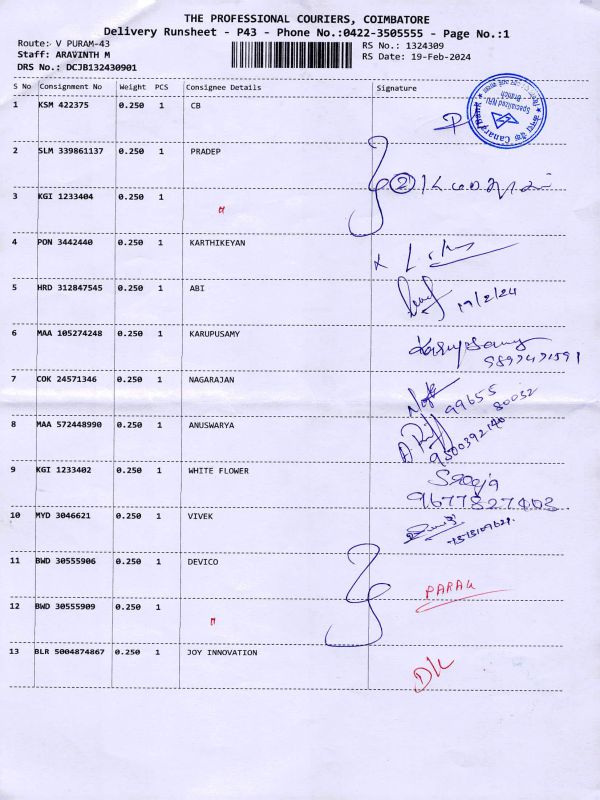 THE PROFESSIONAL COURIERS, COIMBATORE
Delivery Runsheet - P43 - Phone No.:0422-3505555 - Page No.:1
Route: V PURAM-43
RS No.: 1324309
Staff: ARAVINTH M
RS Date: 19-Feb-2024
DRS No.: DCJB132430901
S No Consignment No Weight PCS Consignee Details Signature
1 KSM 422375 0.250 1 CB
Canara Bank
Specialized NRI
Branch
2 SLM 339861137 0.250 1 PRADEP
3 KGI 1233404 0.250 1 "
2
4 PON 3442440 0.250 1 KARTHIKEYAN
5 HRD 312847545 0.250 1 ABI
19/2/24
6 MAA 105274248 0.250 1 KARUPUSAMY Karupsamy
7 COK 24571346 0.250 1 NAGARAJAN
99655
80032
8 MAA 572448990 0.250 1 ANUSWARYA
9500392140
9 KGI 1233402 0.250 1 WHITE FLOWER Saroja
9677827403
10 MYD 3046621 0.250 1 VIVEK
11 BWD 30555906 0.250 1 DEVICO
PARAG
12 BWD 30555909 0.250 1 "
13 BLR 5004874867 0.250 1 JOY INNOVATION
D/L